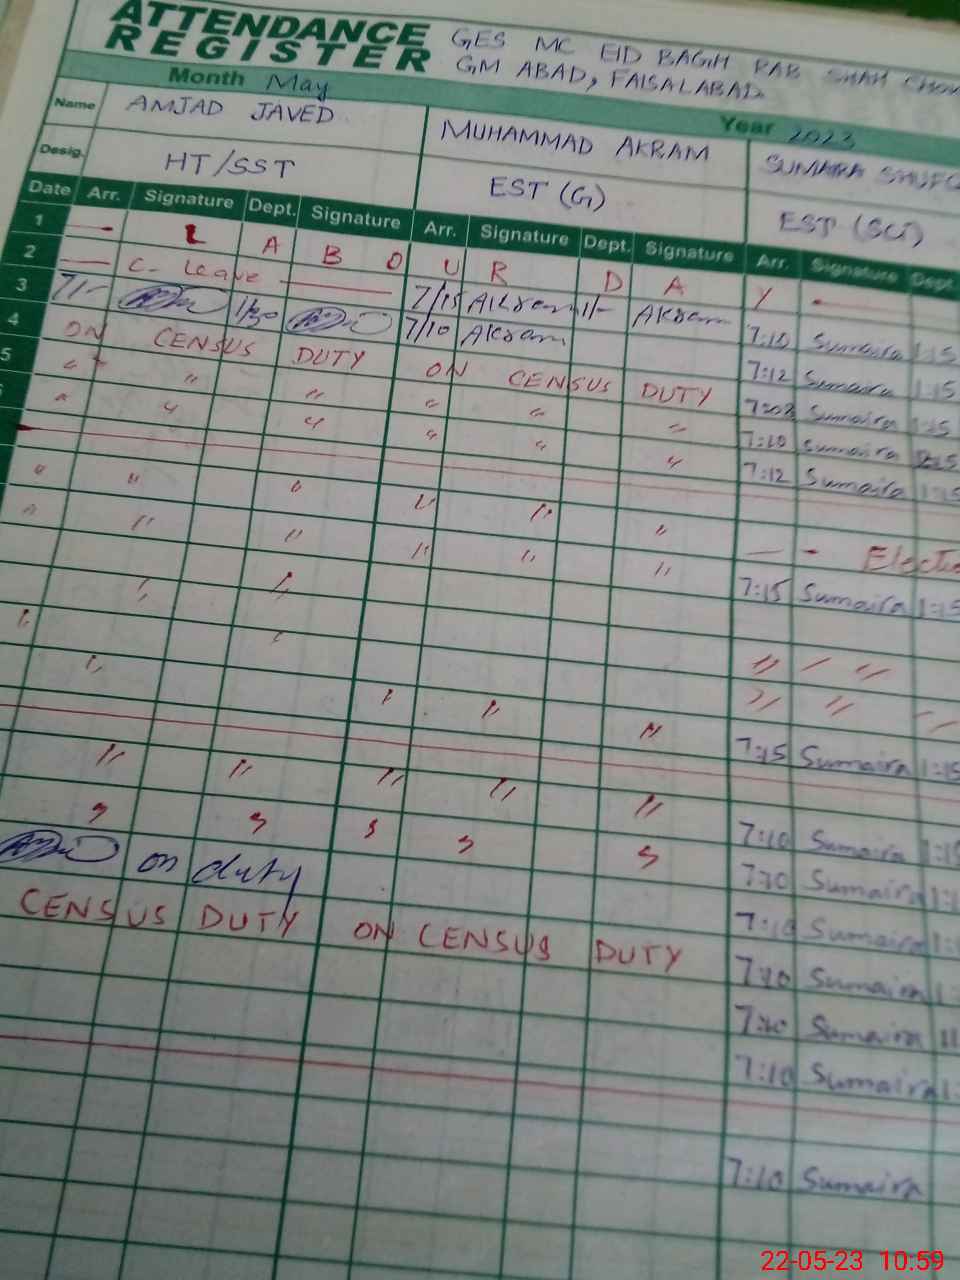 ATTENDANCE REGISTER
GES MC EID BAGH RAB SHAH
GM ABAD, FAISALABAD
Month May Year 2023
Name AMJAD JAVED MUHAMMAD AKRAM SUMAIRA
Desig. HT/SST EST (G) EST (SCI)
Date Arr. Signature Dept. Signature Arr. Signature Dept. Signature Arr. Signature Dept.
1 L A B O U R D A Y
2 C. Leave 7/15 Akram 1/- Akram 7:10 Sumaira 1:15
3 7/- 1/30 7/10 Akram 7:12 Sumaira 1:15
4 ON CENSUS DUTY ON CENSUS DUTY 7:08 Sumaira 1:15
5 " " " " " " 7:10 Sumaira
" " " " " " 7:12 Sumaira 1:15
" " " " " "
" " " " " " — - Electio
" " 7:15 Sumaira 1:15
" " "
" " "
" " " 7:15 Sumaira 1:15
" " " " "
" " " " " 7:10 Sumaira
on duty 7:10 Sumaira
CENSUS DUTY ON CENSUS DUTY 7:10 Sumaira
7:10 Sumaira
7:10 Sumaira
7:10 Sumaira
7:10 Sumaira
22-05-23 10:59